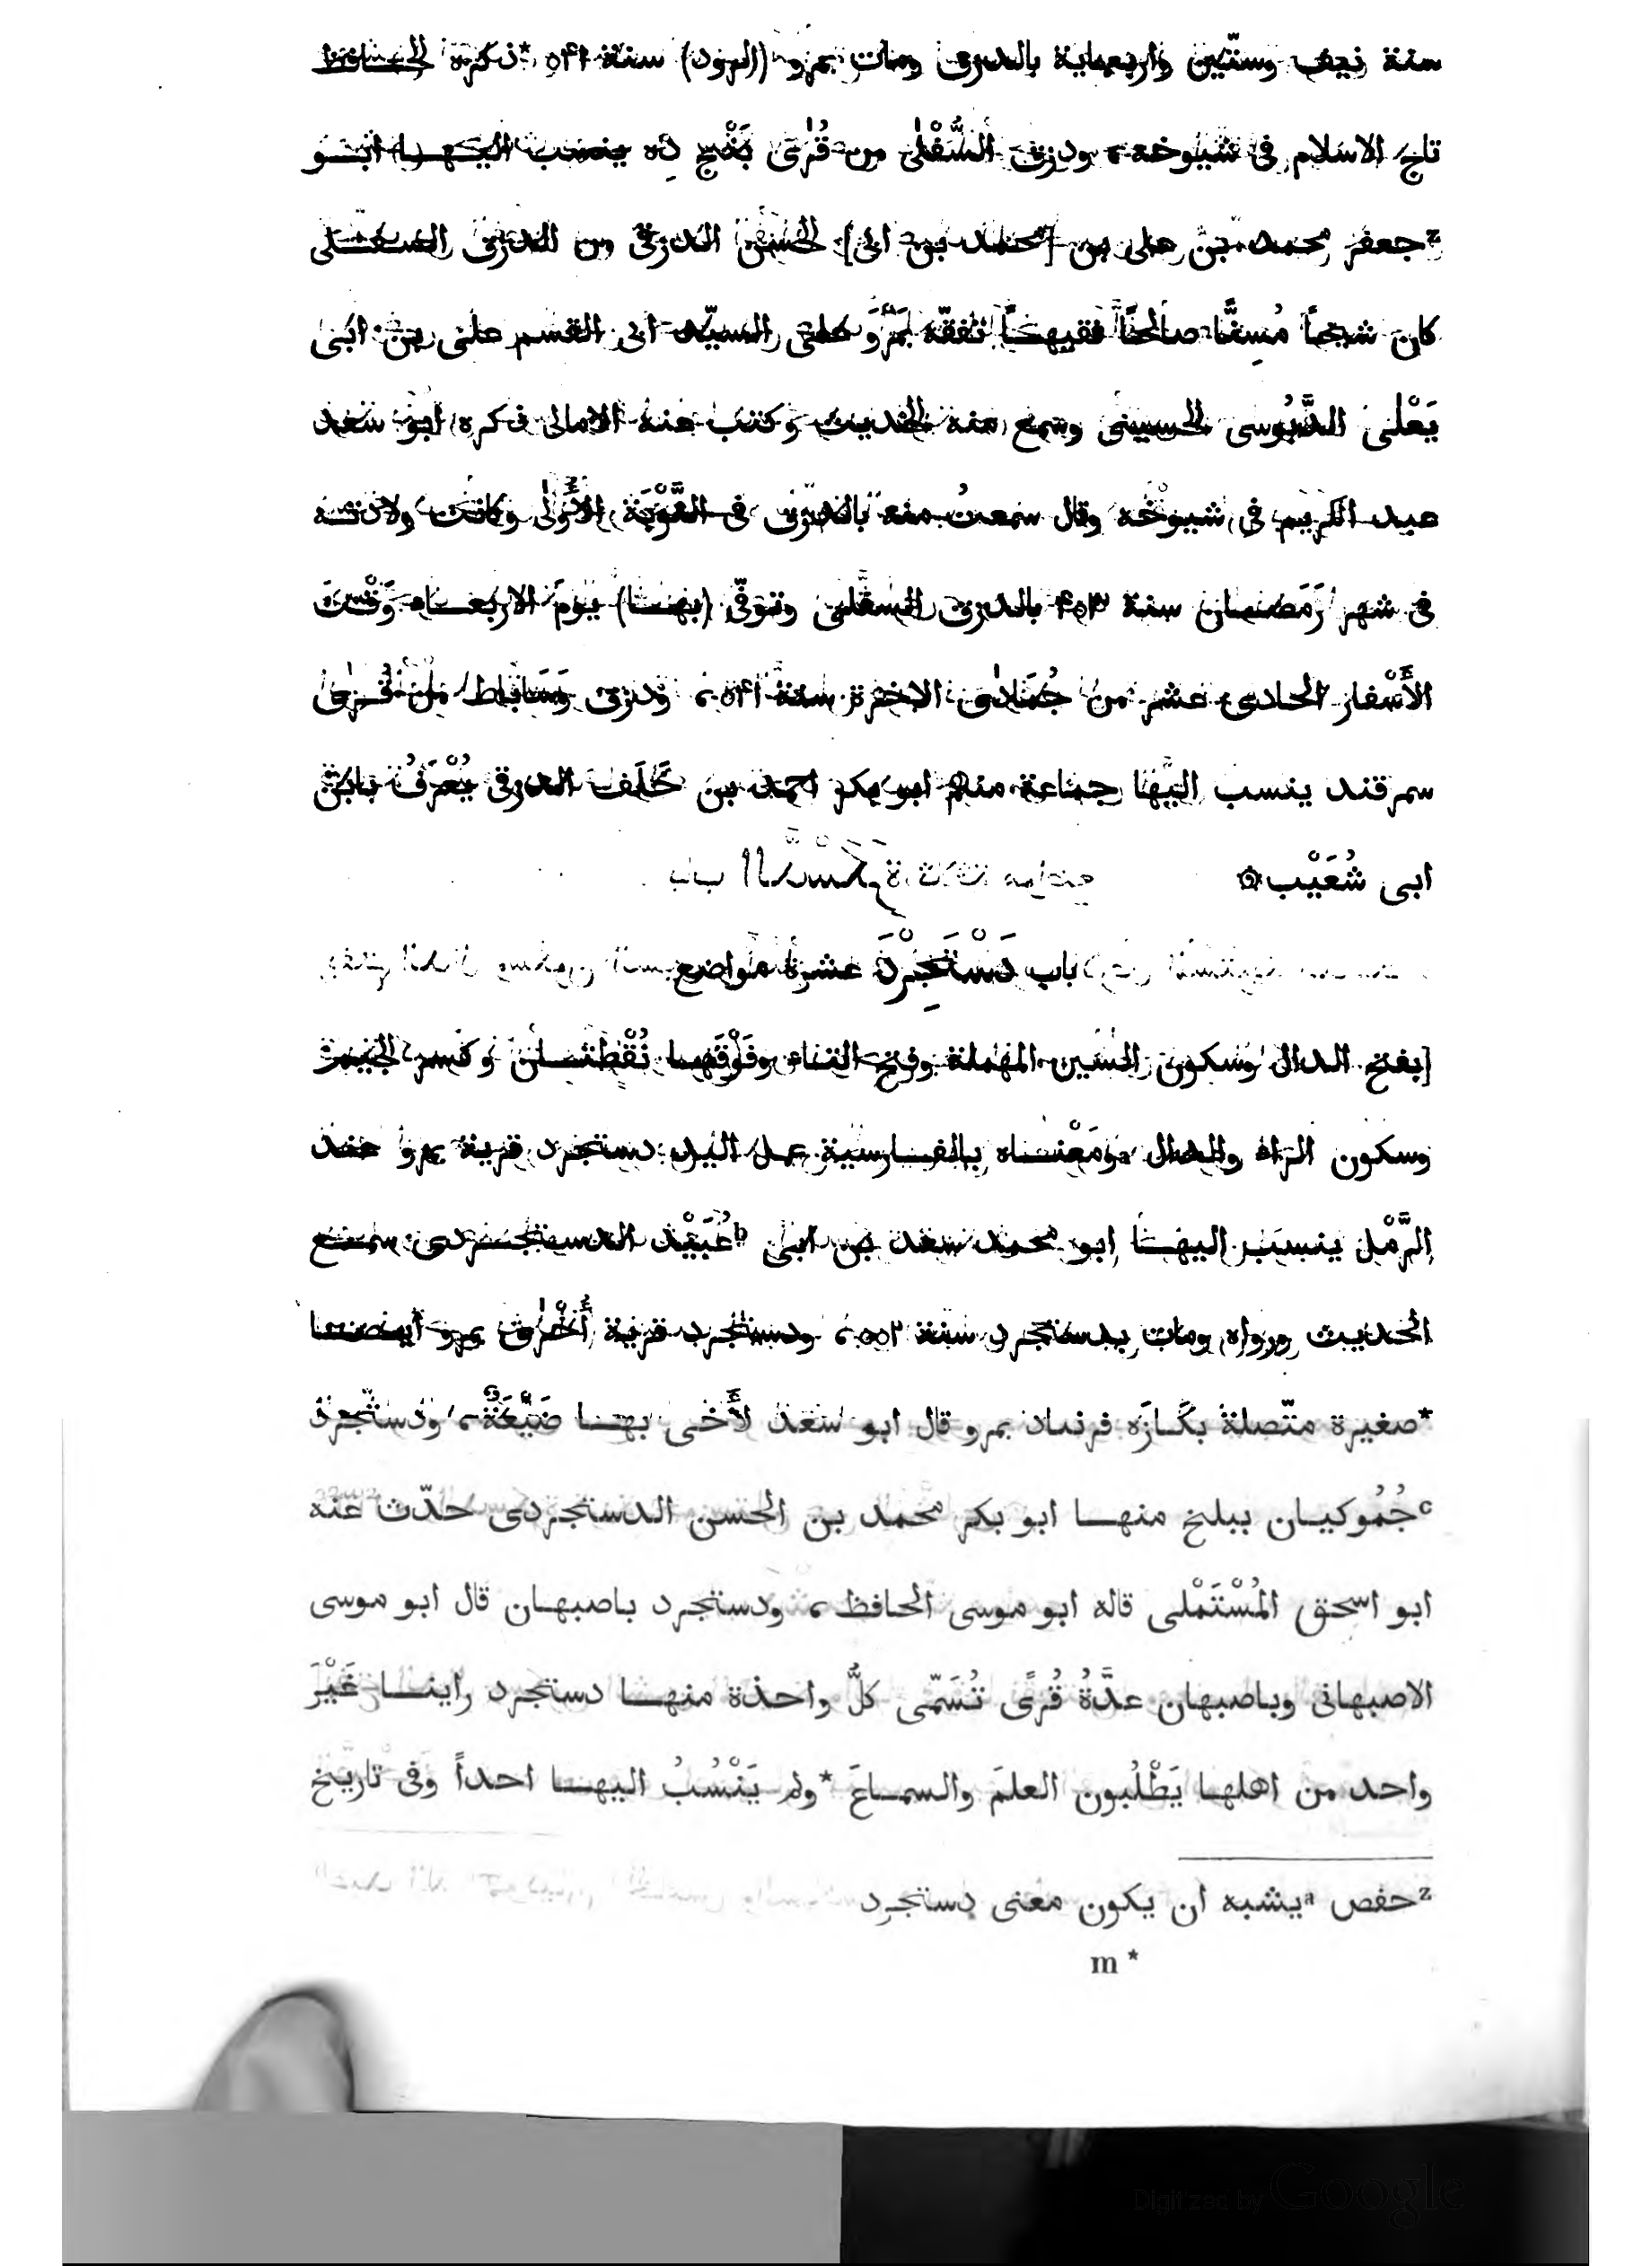 سنة نيف وستّين واربعماية بالدرق ومات بمرو (الرود) سنة ٥۴١ *ذكره الحافظ
تاج الاسلام فى شيوخه، ودزق السُّفْلَى من قُرَى بَنْج دِه ينسب اليها ابو
zجعفر محمد بن على بن [محمد بن ابى] الحسن الدزقى من الدزق السفلى
كان شيخاً مُسِنًّا صالحًا فقيهاً تفقّه بمَرْوَ على السيّد ابى القسم على بن ابى
يَعْلَى الدَّبُوسى الحسينى وسمع منه الحديث وكتب عنه الامالى ذكره ابو سعد
عبد الكريم فى شيوخه وقال سمعتُ منه بالدزق فى النَّوْبَة الأُولى وكانت ولادته
فى شهر رَمَضان سنة ۴٥٣ بالدزق السفلى وتوفّى (بها) يومَ الاربعاء وَقْتَ
الأَسْفار الحادى عشر من جُمَادَى الاخرة سنة ٥۴١، ودزق وَسَاباط من قرى
سمرقند ينسب اليها جماعة منهم ابو بكر احمد بن خَلَف الدزقى يُعْرَفُ بابن
ابى شُعَيْب۞
باب دَسْتَجِرْدَ عشرة مواضع
[بفتح الدال وسكون السين المهملة وفتح التاء وفَوْقَها نُقْطتان وكسر الجيم
وسكون الراء والدال aومَعْناه بالفارسية عمل اليد دستجرد قرية بمرو عند
الرَّمْل ينسب اليها ابو محمد سعد بن ابى bعُبَيْد الدستجردى سمع
الحديث ورواه ومات بدستجرد سنة ٥٥٢، ودستجرد قرية أُخْرَى بمرو أيضا
*صغيرة متّصلة بكَازَه فرنباد بمرو قال ابو سعد لأَخى بها ضَيْعَةٌ، ودستجرد
cجُمُوكيان ببلخ منها ابو بكر محمد بن الحسن الدستجردى حدّث عنه
ابو اسحق المُسْتَمْلى قاله ابو موسى الحافظ، ودستجرد باصبهان قال ابو موسى
الاصبهانى وباصبهان عدَّةُ قُرًى تُسَمّى كلُّ واحدة منها دستجرد راينا غَيْرَ
واحد من اهلها يَطْلُبون العلمَ والسماعَ *ولم يَنْسُبُ اليها احداً وفى تاريخ
zحفص aيشبه ان يكون معنى دستجرد
m *
Digitized by Google